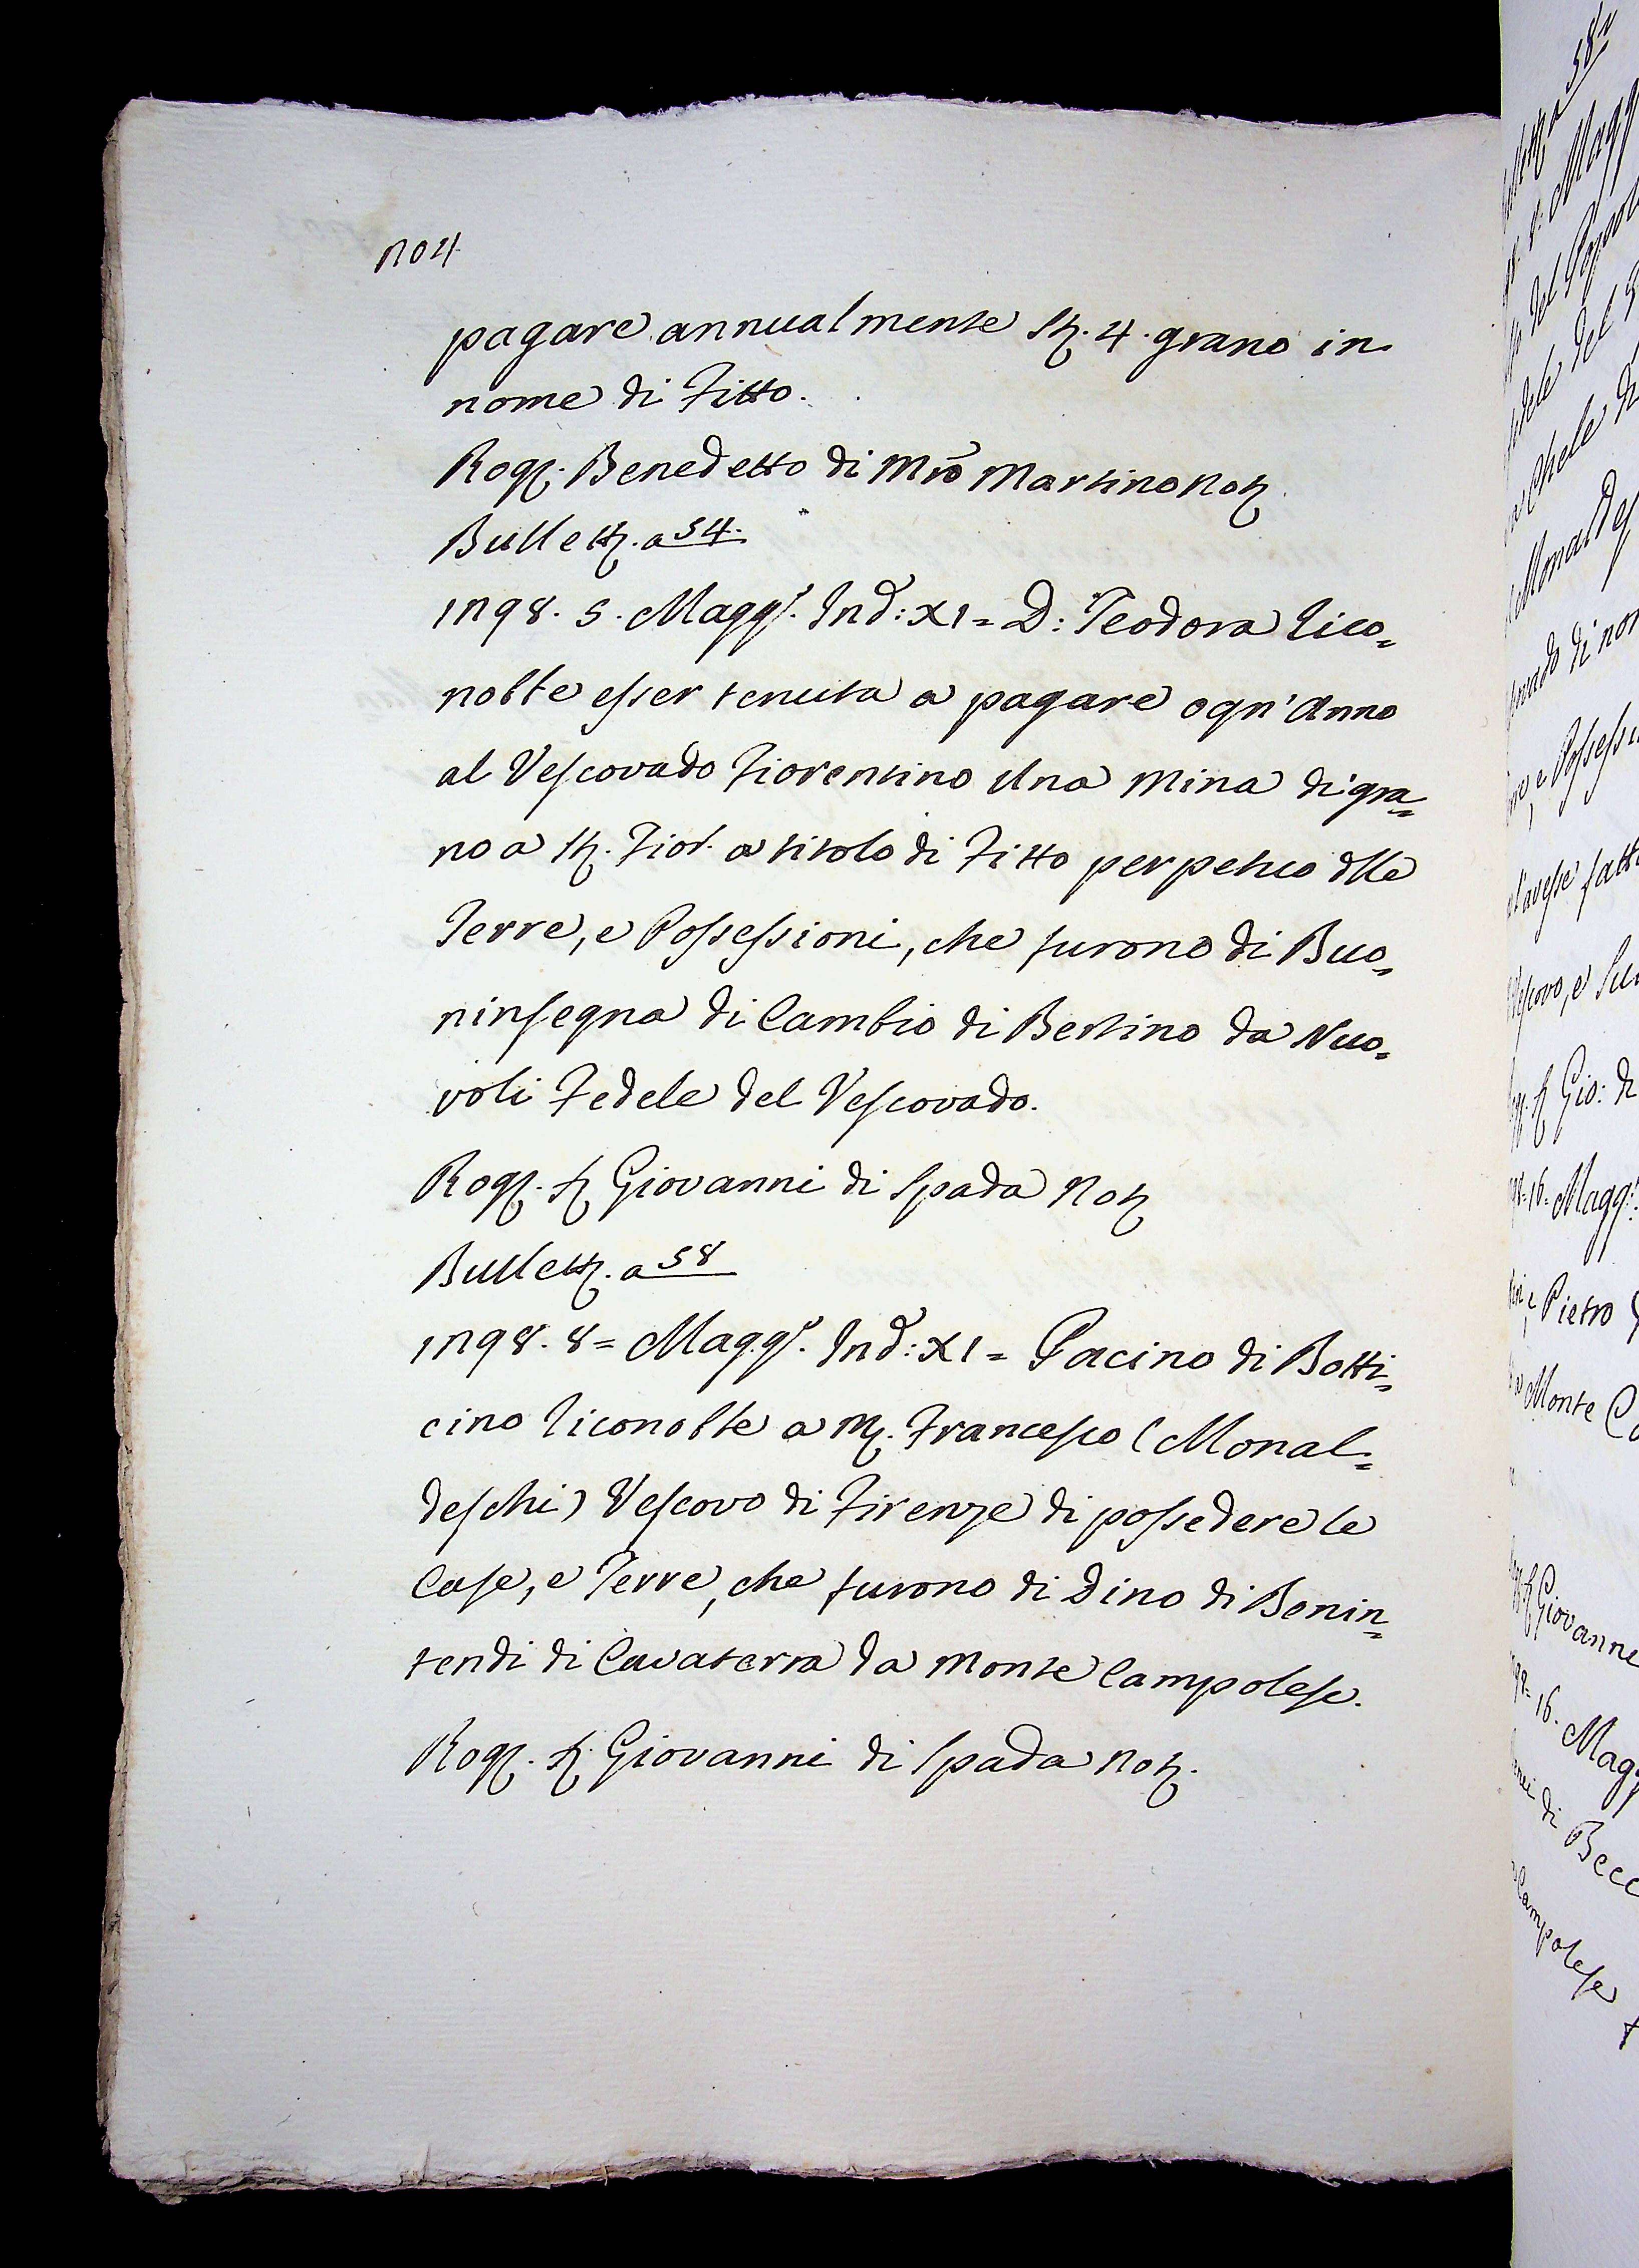 204
pagare annualmente St. 4. grano in
nome di Fitto.
Rog. Benedetto di Mro Martino Not.
Bullett. a 54.
1298. 5. Magg. Ind: XI = D: Teodora rico=
nobbe esser tenuta a pagare ogn' Anno
al Vescovado Fiorentino Una Mina di gra=
no a St. Fior. a titolo di Fitto perpetuo dlle
Terre, e Possessioni, che furono di Buo=
ninsegna di Cambio di Bertino da Nuo=
voli Fedele del Vescovado.
Rog. S. Giovanni di Spada Not
Bullett. a 58
1298. 8 = Magg. Ind: XI = Pacino di Botti=
cino riconobbe a M. Francesco (Monal=
deschi) Vescovo di Firenze di possedere le
Case, e Terre, che furono di Dino di Bonin=
tendi di Cavaterra da Monte Campolese.
Rog. S. Giovanni di Spada Not.
58
Magg
del Popolo
del
Chele di
Monald
di non
e Possessi
avesse fatt
Vescovo, e
Gio: di
16. Magg:
Pietro
Monte Ca
Giovanne
16. Mag
di Becc
Campolese